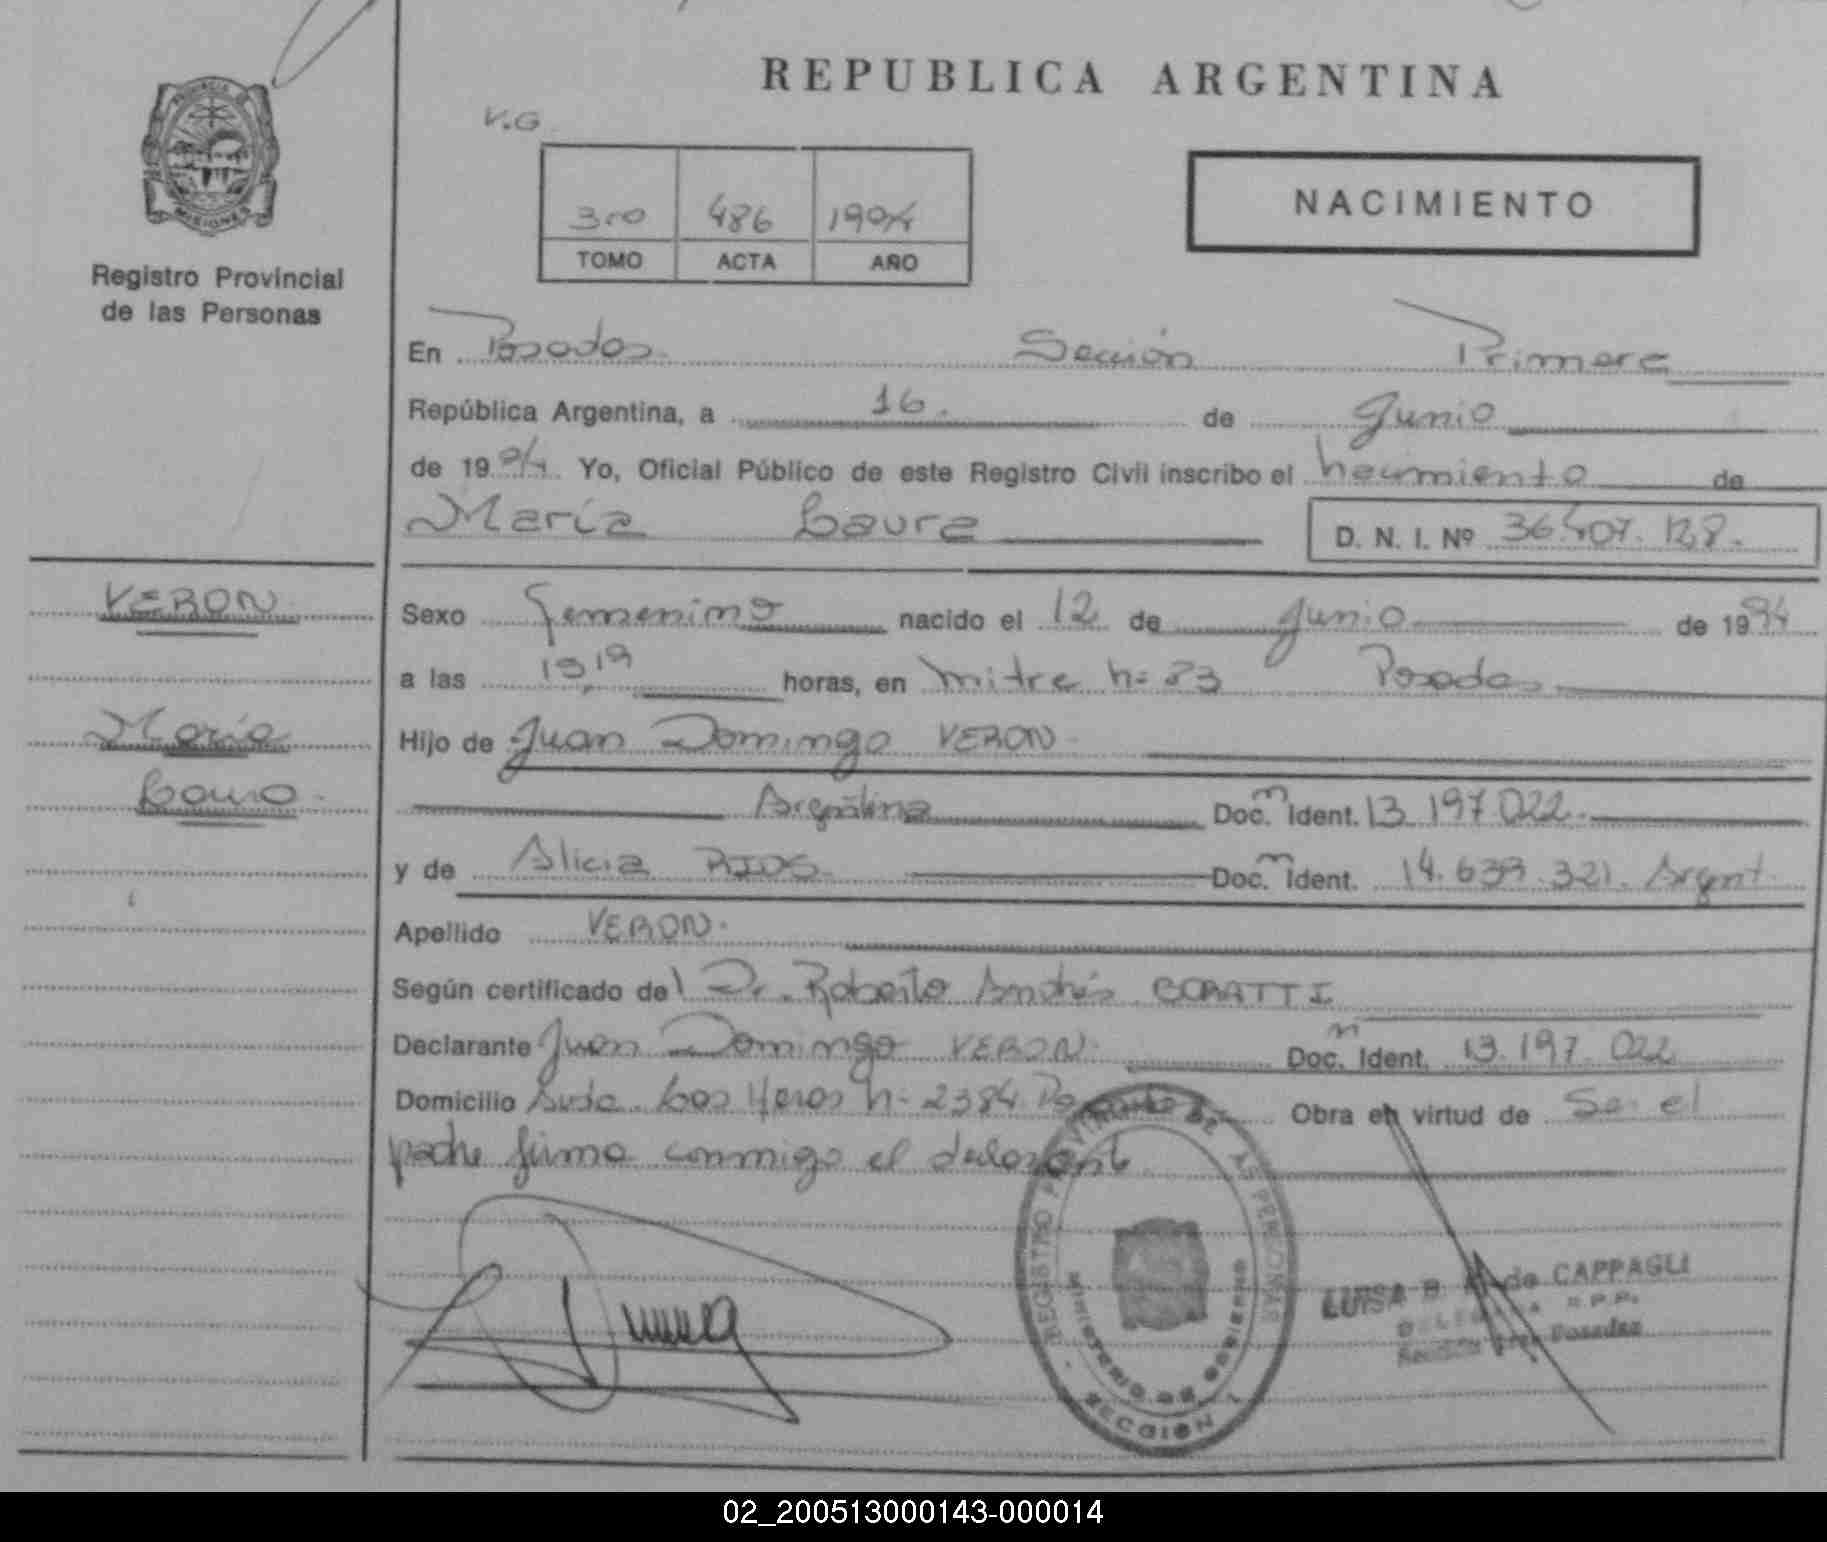 REPUBLICA ARGENTINA
PROVINCIA DE
MISIONES
Registro Provincial
de las Personas
V.G
3ro 486 1994
TOMO ACTA AÑO
NACIMIENTO
En Posadas Sección Primera
República Argentina, a 16. de Junio
de 1994 Yo, Oficial Público de este Registro Civil inscribo el nacimiento de
María Laura
D. N. I. Nº 36.407.128.
VERON
María
Laura
Sexo Femenino nacido el 12 de Junio de 1994
a las 19,19 horas, en mitre nº 23 Posadas
Hijo de Juan Domingo VERON
Argentina Doc. m Ident. 13.197.022.
y de Alicia RIOS Doc. m Ident. 14.639.321. Argent.
Apellido VERON.
Según certificado del Dr. Roberto Andrés BORATTI
Declarante Juan Domingo VERON Doc. m Ident. 13.197.022
Domicilio Avda. Los Heros nº 2384 Obra en virtud de Ser el
padre firma conmigo el declarante
REGISTRO PROVINCIAL DE LAS PERSONAS
MINISTERIO DE GOBIERNO
SECCION 1
LUISA B. de CAPPAGLI
R.P.P.
Sección 1ra. Posadas
02_200513000143-000014